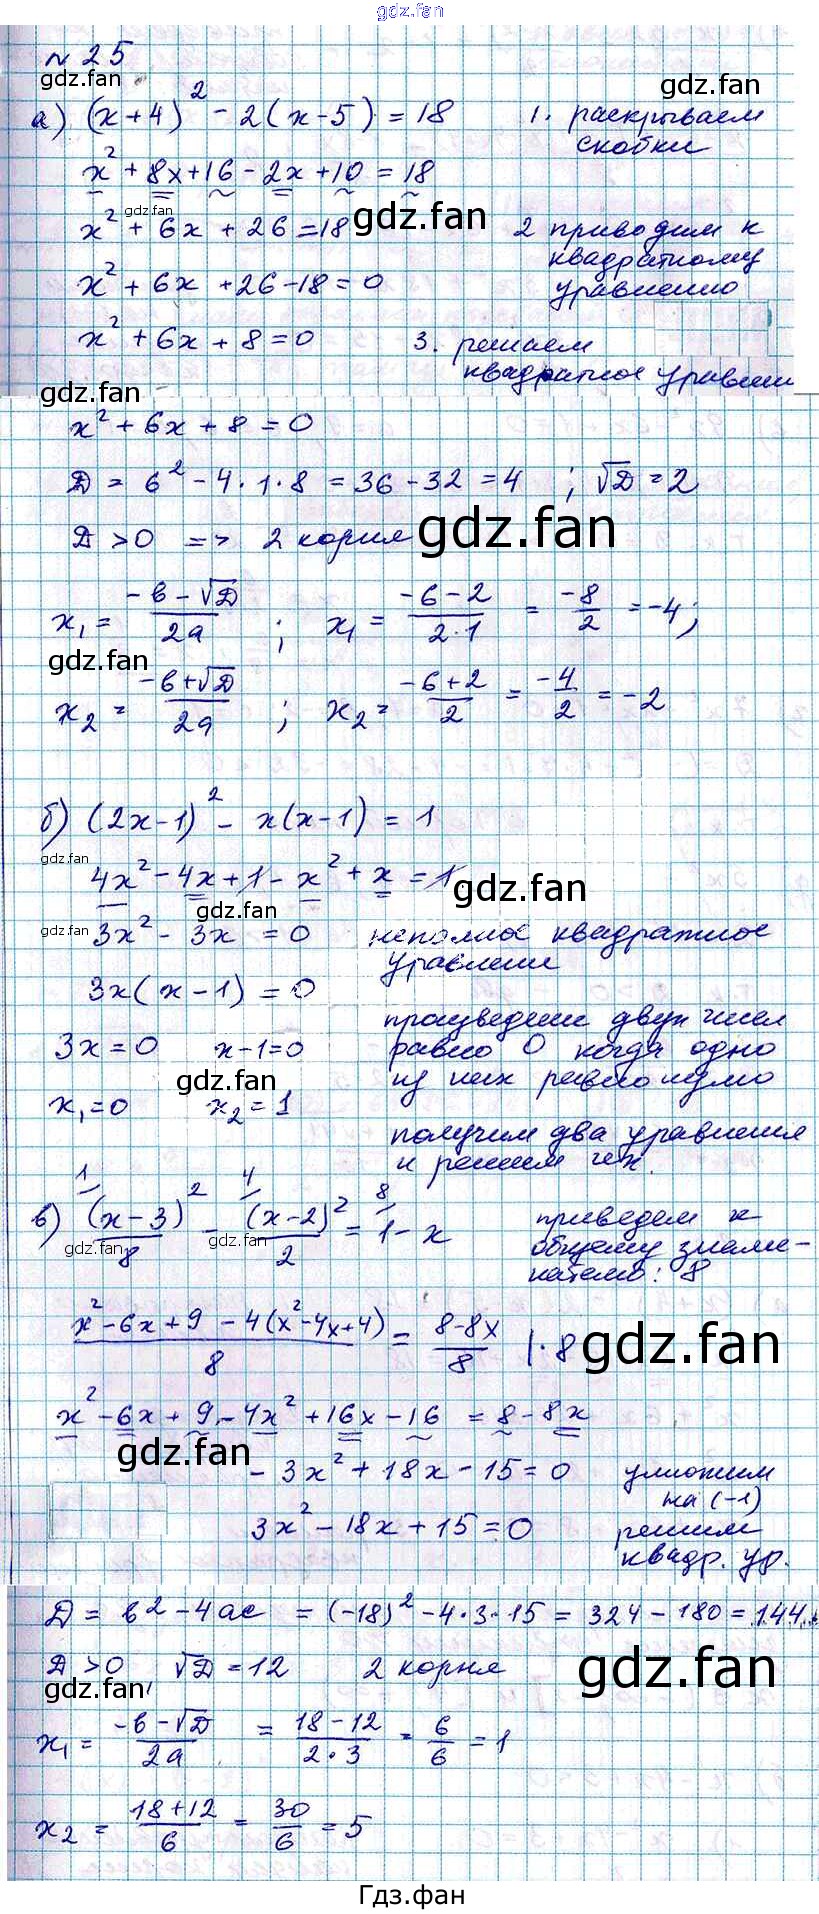 gdz.fan
№ 25
gdz.fan
gdz.fan
а) (x+4)² - 2(x-5) = 18 1. раскрываем скобки
x² + 8x + 16 - 2x + 10 = 18
gdz.fan
gdz.fan
x² + 6x + 26 = 18 2 приводим к квадратному уравнению
x² + 6x + 26 - 18 = 0
x² + 6x + 8 = 0 3. решаем квадратное уравнени
gdz.fan
x² + 6x + 8 = 0
D = 6² - 4·1·8 = 36 - 32 = 4 ; √D = 2
D > 0 => 2 корня
gdz.fan
x₁ = (-b - √D)/2a ; x₁ = (-6 - 2)/(2·1) = -8/2 = -4;
gdz.fan
x₂ = (-b + √D)/2a ; x₂ = (-6 + 2)/2 = -4/2 = -2
б) (2x - 1)² - x(x - 1) = 1
gdz.fan
4x² - 4x + 1 - x² + x = 1
gdz.fan
gdz.fan
gdz.fan
3x² - 3x = 0 неполное квадратное уравнение
3x(x - 1) = 0
произведение двух чисел
3x = 0 x - 1 = 0 равно 0 когда одно
gdz.fan
из них равно нулю
x₁ = 0 x₂ = 1
получим два уравнения
и решим их.
в) ¹⁄(x-3)²/8 - ⁴⁄(x-2)²/2 = ⁸⁄1 - x приведем к общему знаме-
gdz.fan
gdz.fan
нателю: 8
(x² - 6x + 9 - 4(x² - 4x + 4))/8 = (8 - 8x)/8 |·8
gdz.fan
x² - 6x + 9 - 4x² + 16x - 16 = 8 - 8x
gdz.fan
-3x² + 18x - 15 = 0 умножим на (-1)
3x² - 18x + 15 = 0 решим квадр. ур.
D = b² - 4ac = (-18)² - 4·3·15 = 324 - 180 = 144
D > 0, √D = 12 2 корня
gdz.fan
gdz.fan
x₁ = (-b - √D)/2a = (18 - 12)/(2·3) = 6/6 = 1
x₂ = (18 + 12)/6 = 30/6 = 5
Гдз.фан